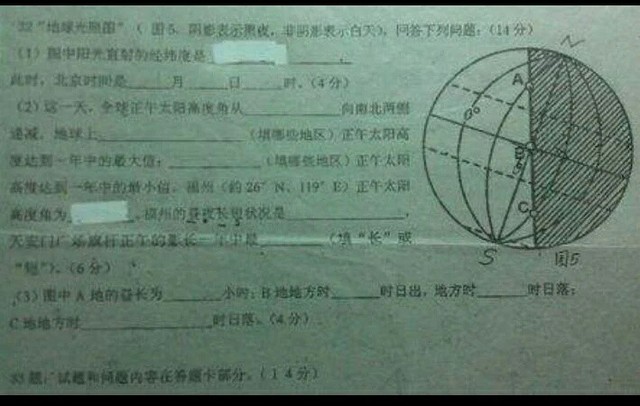 32 "地球光照图"(图5，阴影表示黑夜，非阴影表示白天)，回答下列问题：(14分)
(1)图中阳光直射的经纬度是
此时，北京时间是 月 日 时。(4分)
(2)这一天，全球正午太阳高度角从 向南北两侧
递减，地球上 (填哪些地区)正午太阳高
度达到一年中的最大值； (填哪些地区)正午太阳
高度达到一年中的最小值。福州(约26°N、119°E)正午太阳
高度角为 ，福州的昼夜长短状况是 ，
天安门广场旗杆正午的影长一年中最 (填"长"或
"短")。(6分)
(3)图中A地的昼长为 小时；B地地方时 时日出，地方时 时日落；
C地地方时 时日落。(4分)
33题：试题和问题内容在答题卡部分。(14分)
N
A
0°
B
C
S
图5